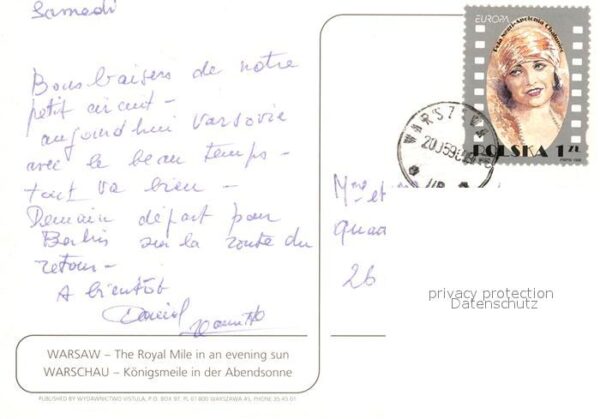 Samedi
Bons baisers de notre
petit circuit -
aujourd'hui Varsovie
avec le beau temps -
tout va bien -
Demain départ pour
Berlin sur la route du
retour -
A bientôt
Daniel
WARSAW – The Royal Mile in an evening sun
WARSCHAU – Königsmeile in der Abendsonne
PUBLISHED BY WYDAWNICTWO VISTULA, P.O. BOX 97, PL 01 800 WARSZAWA 45, PHONE 35-45-01
EUROPA
POLSKA 1 ZŁ
WARSZAWA
Mme et
Quai
26
privacy protection
Datenschutz